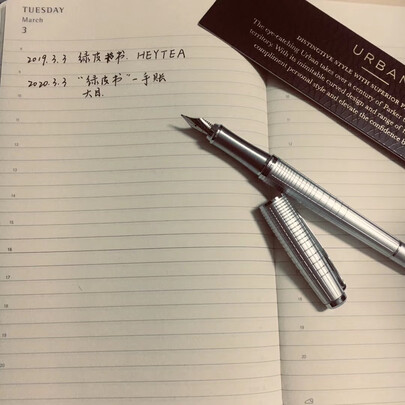 TUESDAY
March
3
2019.3.3 绿皮书 HEYTEA
2020.3.3 "绿皮书"一手账
大月
URBAN
DISTINCTIVE STYLE WITH SUPERIOR
The eye-catching Urban takes over a century of Parker
territory. With its inimitable curved design and range of
compliment personal style and elevate the confidence